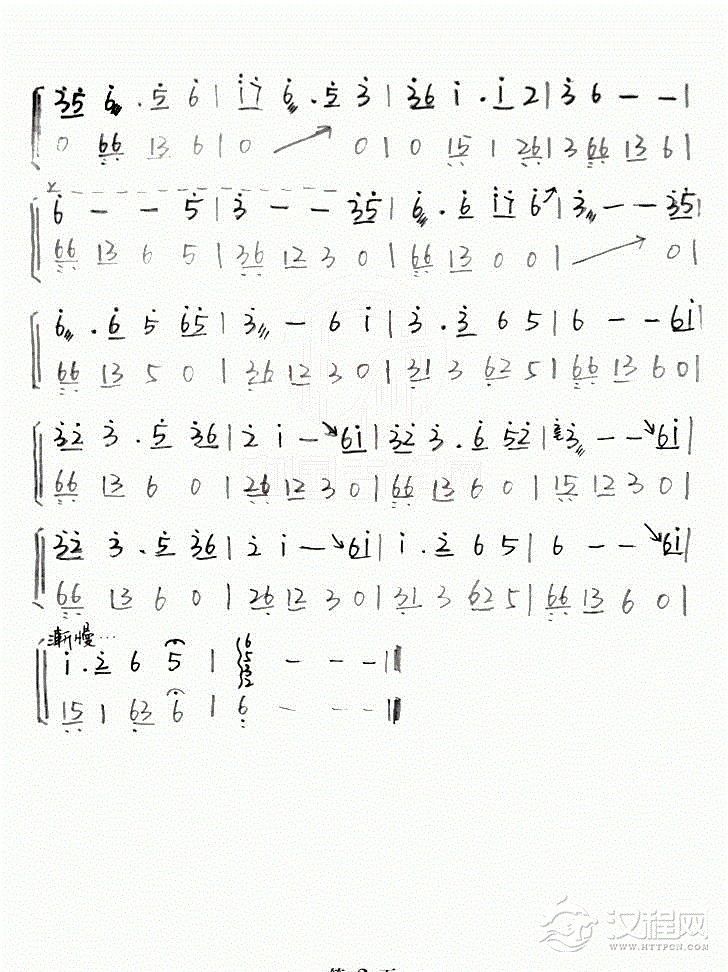 35 6 . 5 6 | i 7 6 . 5 3 | 36 i . i 2 | 3 6 - - |
0 66 13 6 | 0 ↗ 0 | 0 15 1 26 | 3 66 13 6 |
6 - - 5 | 3 - - 35 | 6 . 6 i7 6 | 3 - - 35 |
66 13 6 5 | 36 12 3 0 | 66 13 0 0 | ↗ 0 |
6 . 6 5 65 | 3 - 6 i | 3 . 3 6 5 | 6 - - 6i |
66 13 5 0 | 36 12 3 0 | 31 3 62 5 | 66 13 6 0 |
32 3 . 5 36 | 2 i - ↘ 6i | 32 3 . 6 52 | 3 - - ↘ 6i |
66 13 6 0 | 26 12 3 0 | 66 13 6 0 | 15 12 3 0 |
32 3 . 5 36 | 2 i - ↘ 6i | i . 2 6 5 | 6 - - ↘ 6i |
66 13 6 0 | 26 12 3 0 | 31 3 62 5 | 66 13 6 0 |
漸慢…
i . 2 6 5 | 6532 - - - ||
15 1 63 6 | 6 - - - ||
汉程网
HTTPCN.COM